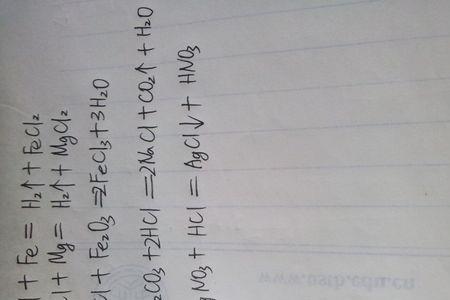 l + Fe = H₂↑ + FeCl₂
l + Mg = H₂↑ + MgCl₂
Cl + Fe₂O₃ =2FeCl₃+3H₂O
₂CO₃ +2HCl =2NaCl+CO₂↑ + H₂O
gNO₃ + HCl = AgCl↓ + HNO₃
www.ustb.edu.cn